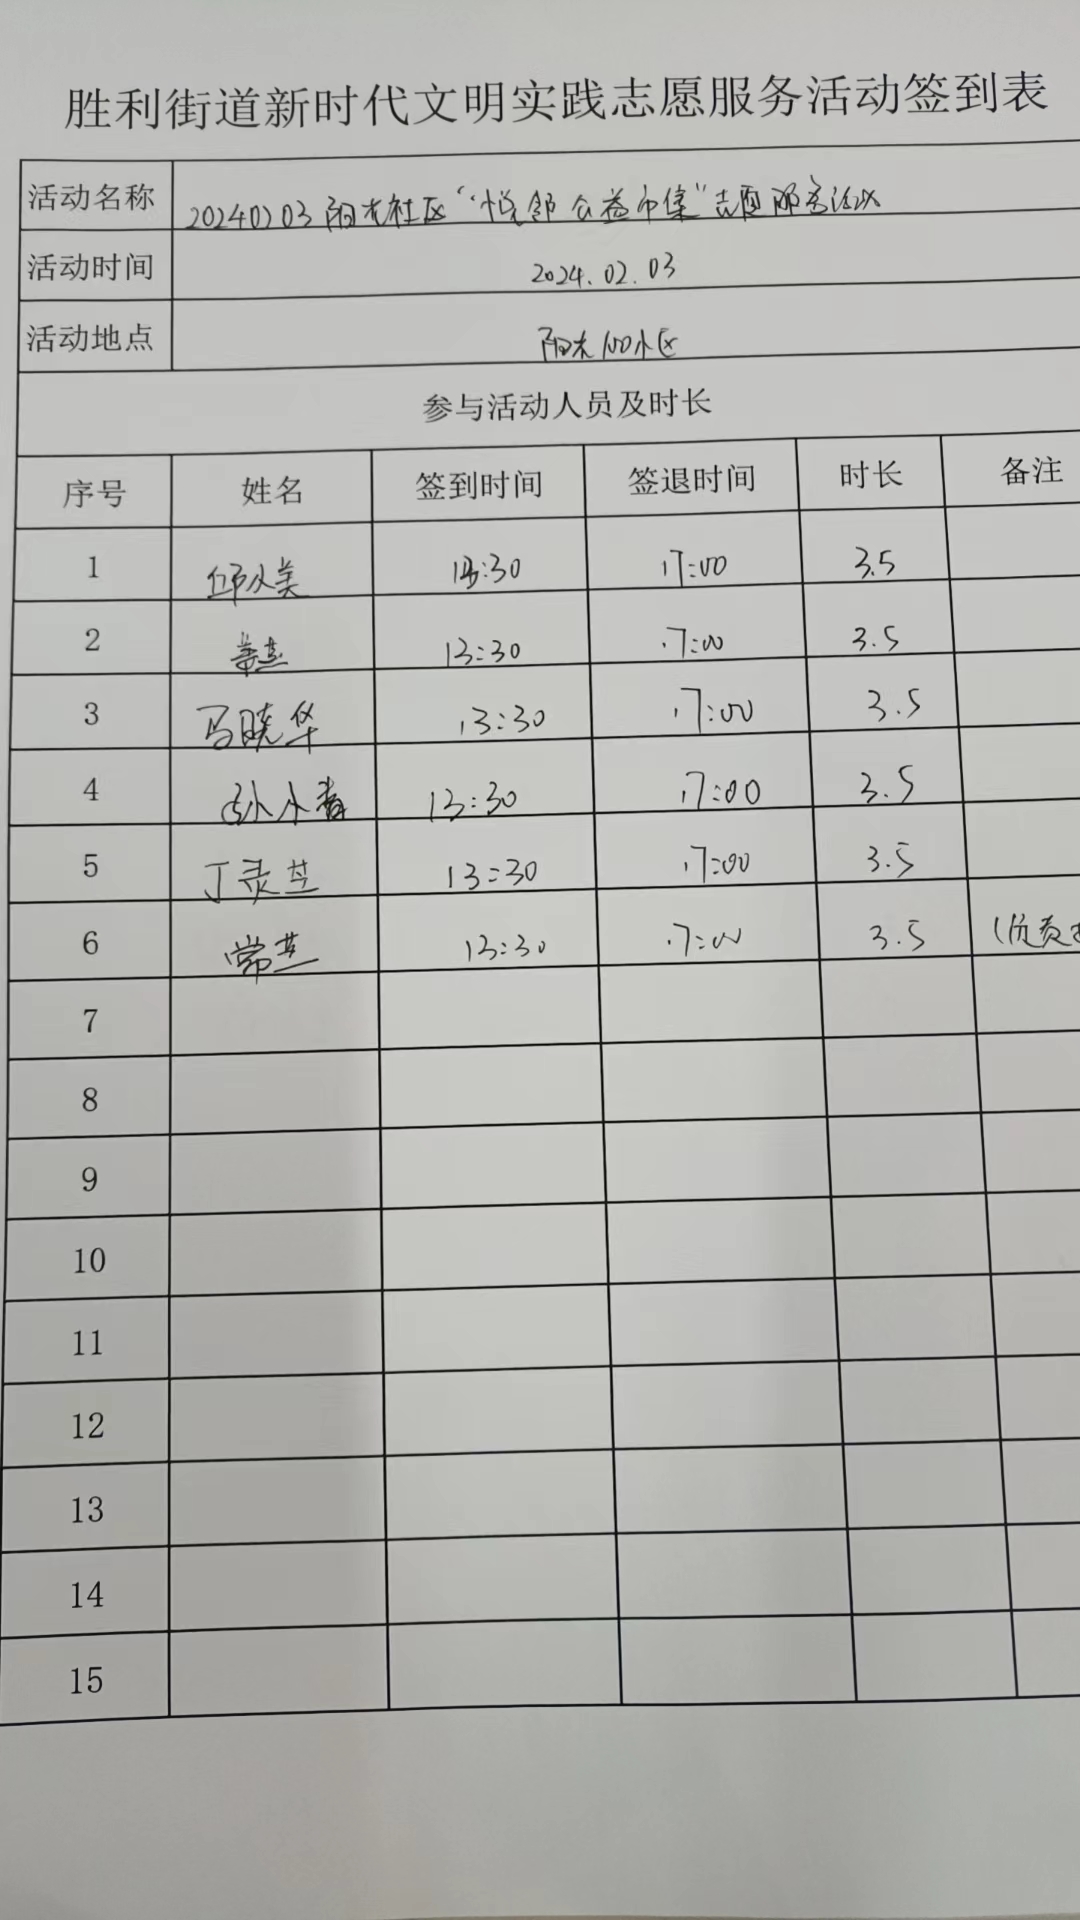 胜利街道新时代文明实践志愿服务活动签到表
活动名称 20240203阳光社区“悦邻公益市集”志愿服务活动
活动时间 2024.02.03
活动地点 阳光100小区
参与活动人员及时长
序号 姓名 签到时间 签退时间 时长 备注
1 邱小美 13:30 17:00 3.5
2 13:30 17:00 3.5
3 马晓华 13:30 17:00 3.5
4 孙小青 13:30 17:00 3.5
5 丁灵芝 13:30 17:00 3.5
6 常燕 13:30 17:00 3.5 (负责
7
8
9
10
11
12
13
14
15